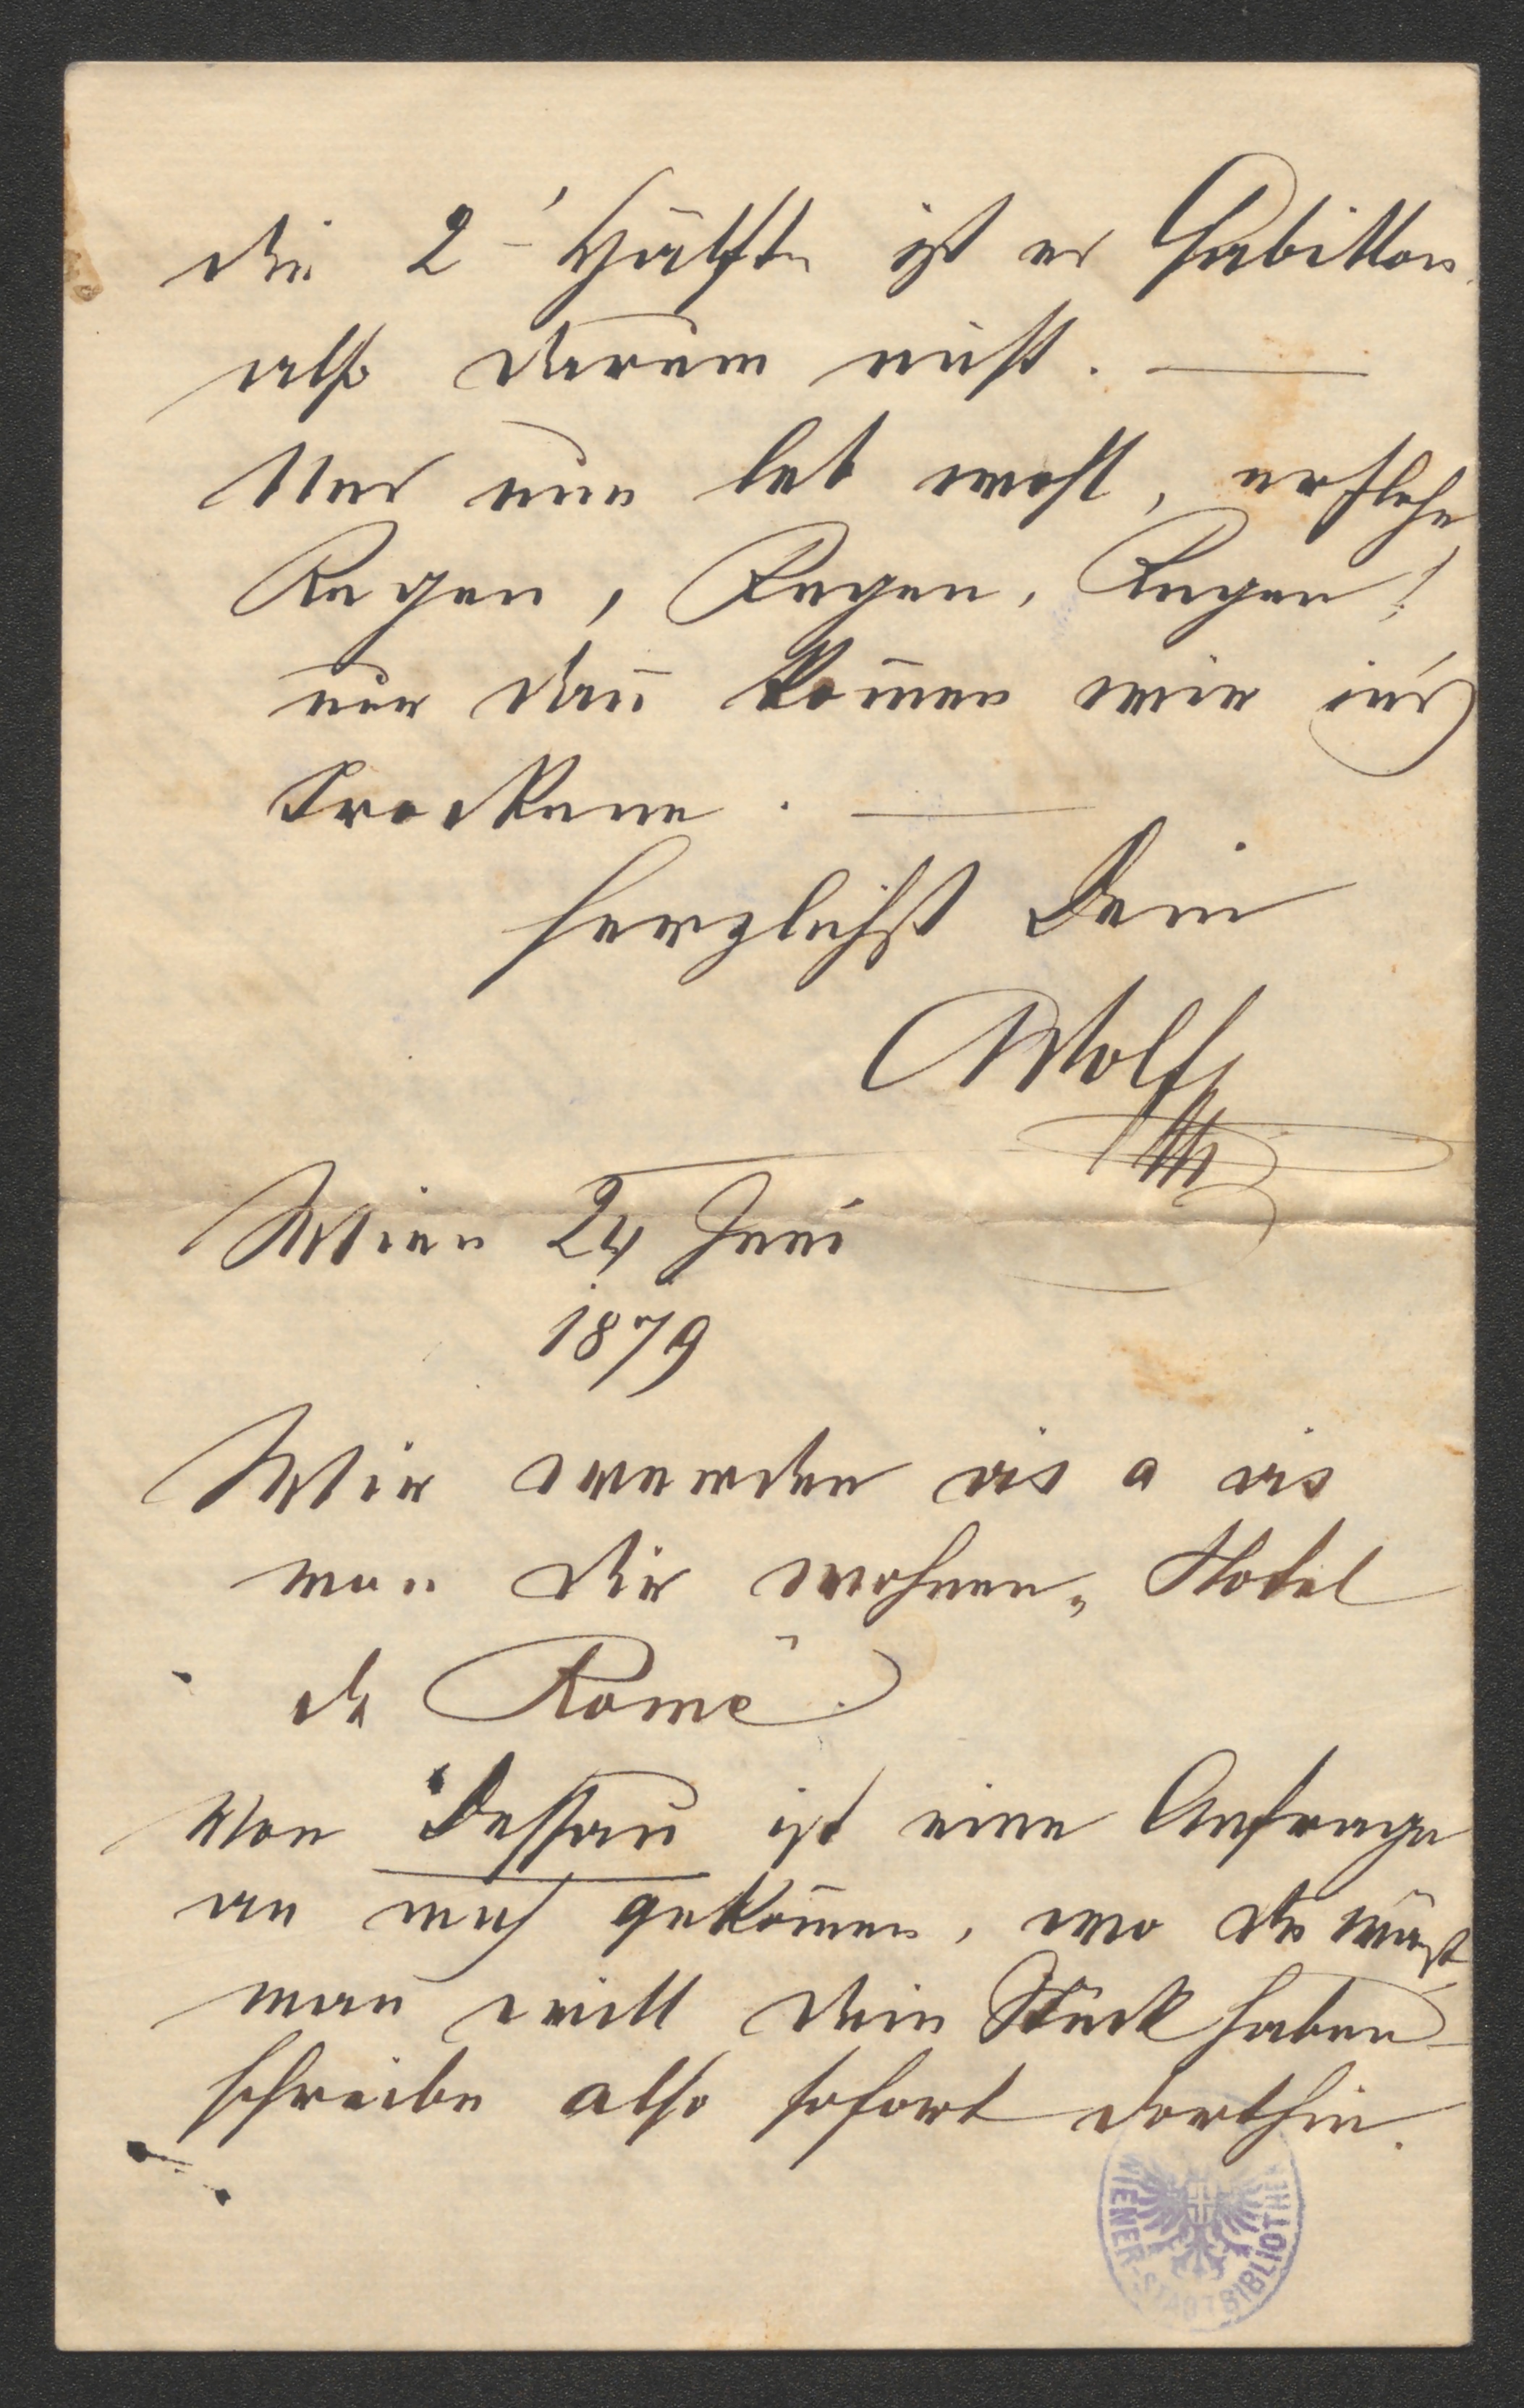 die 2te Hälfte ist es Gabillon
also darum nicht. —
Und nun leb wohl, erflehe
Regen, Regen, Regen!
nur dan̄ kom̄en wir in's
Trockene. —
herzlichst Dein
Wolf
Wien 24 Juni
1879
Wir werden vis a vis
von dir wohnen „Hotel
de Rome".
Von Dessau ist eine Anfrage
an mich gekom̄en, wo du wärst
man will dein Stück haben
schreibe also sofort dorthin.
WIENER STADTBIBLIOTHEK